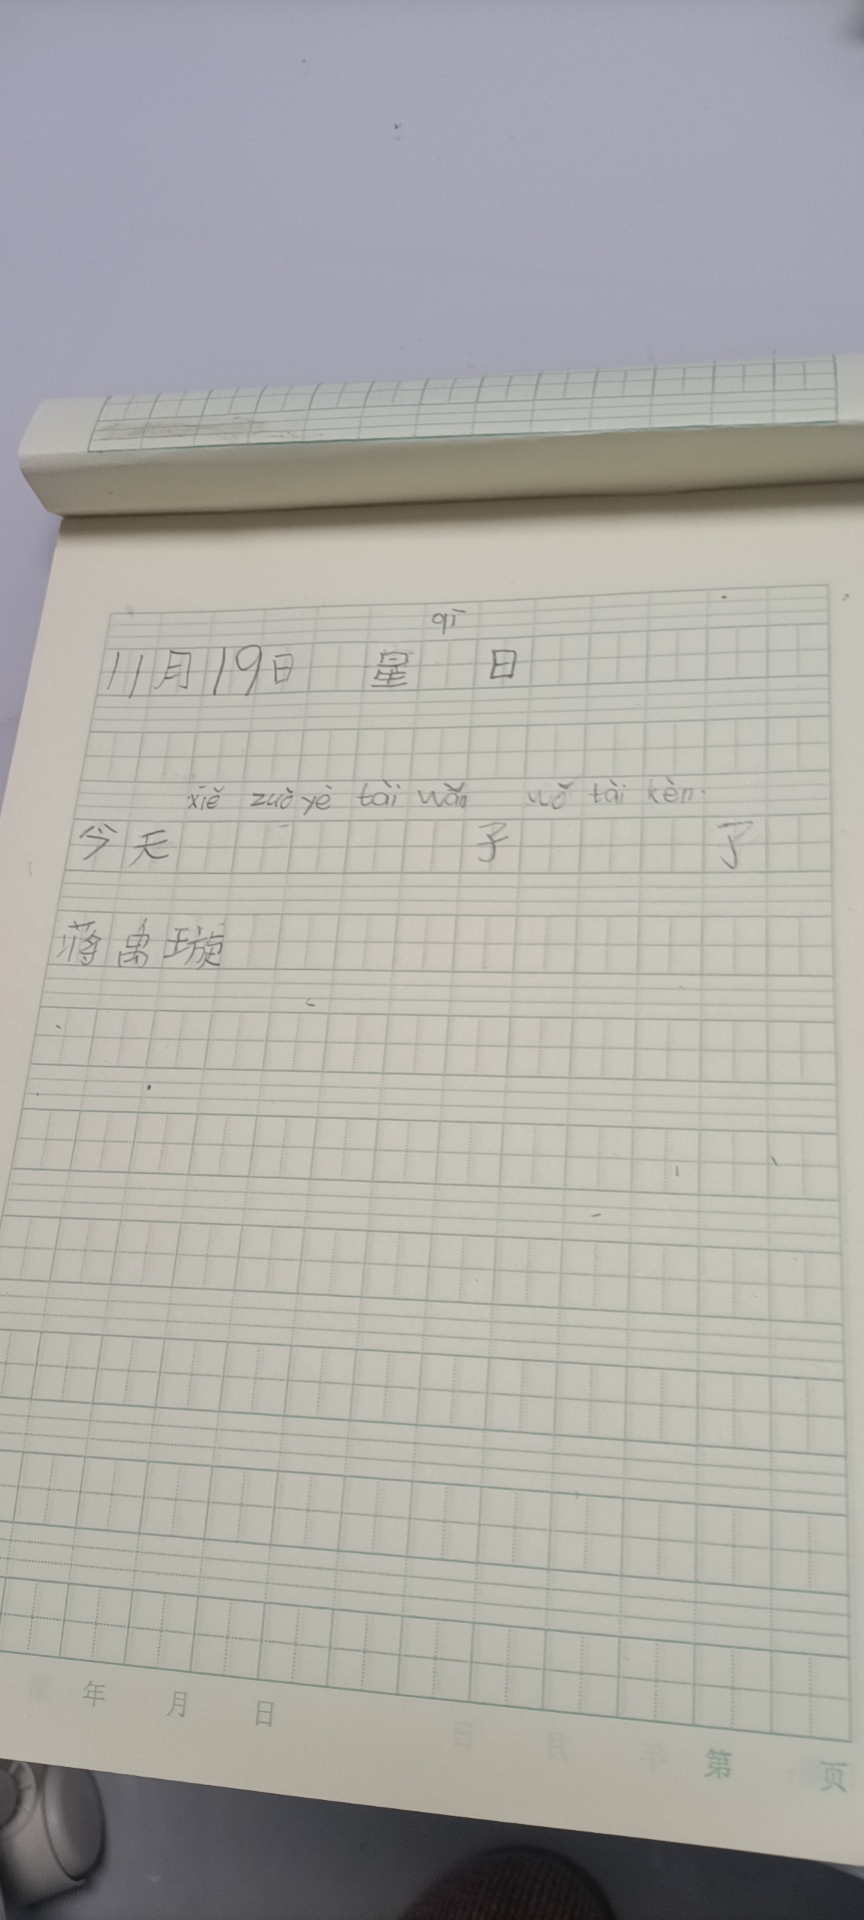 qī
11月19日 星 日
xiě zuò yè tài wǎn wǒ tài kèn
今天 子 了
蒋禹璇
年 月 日
第 页